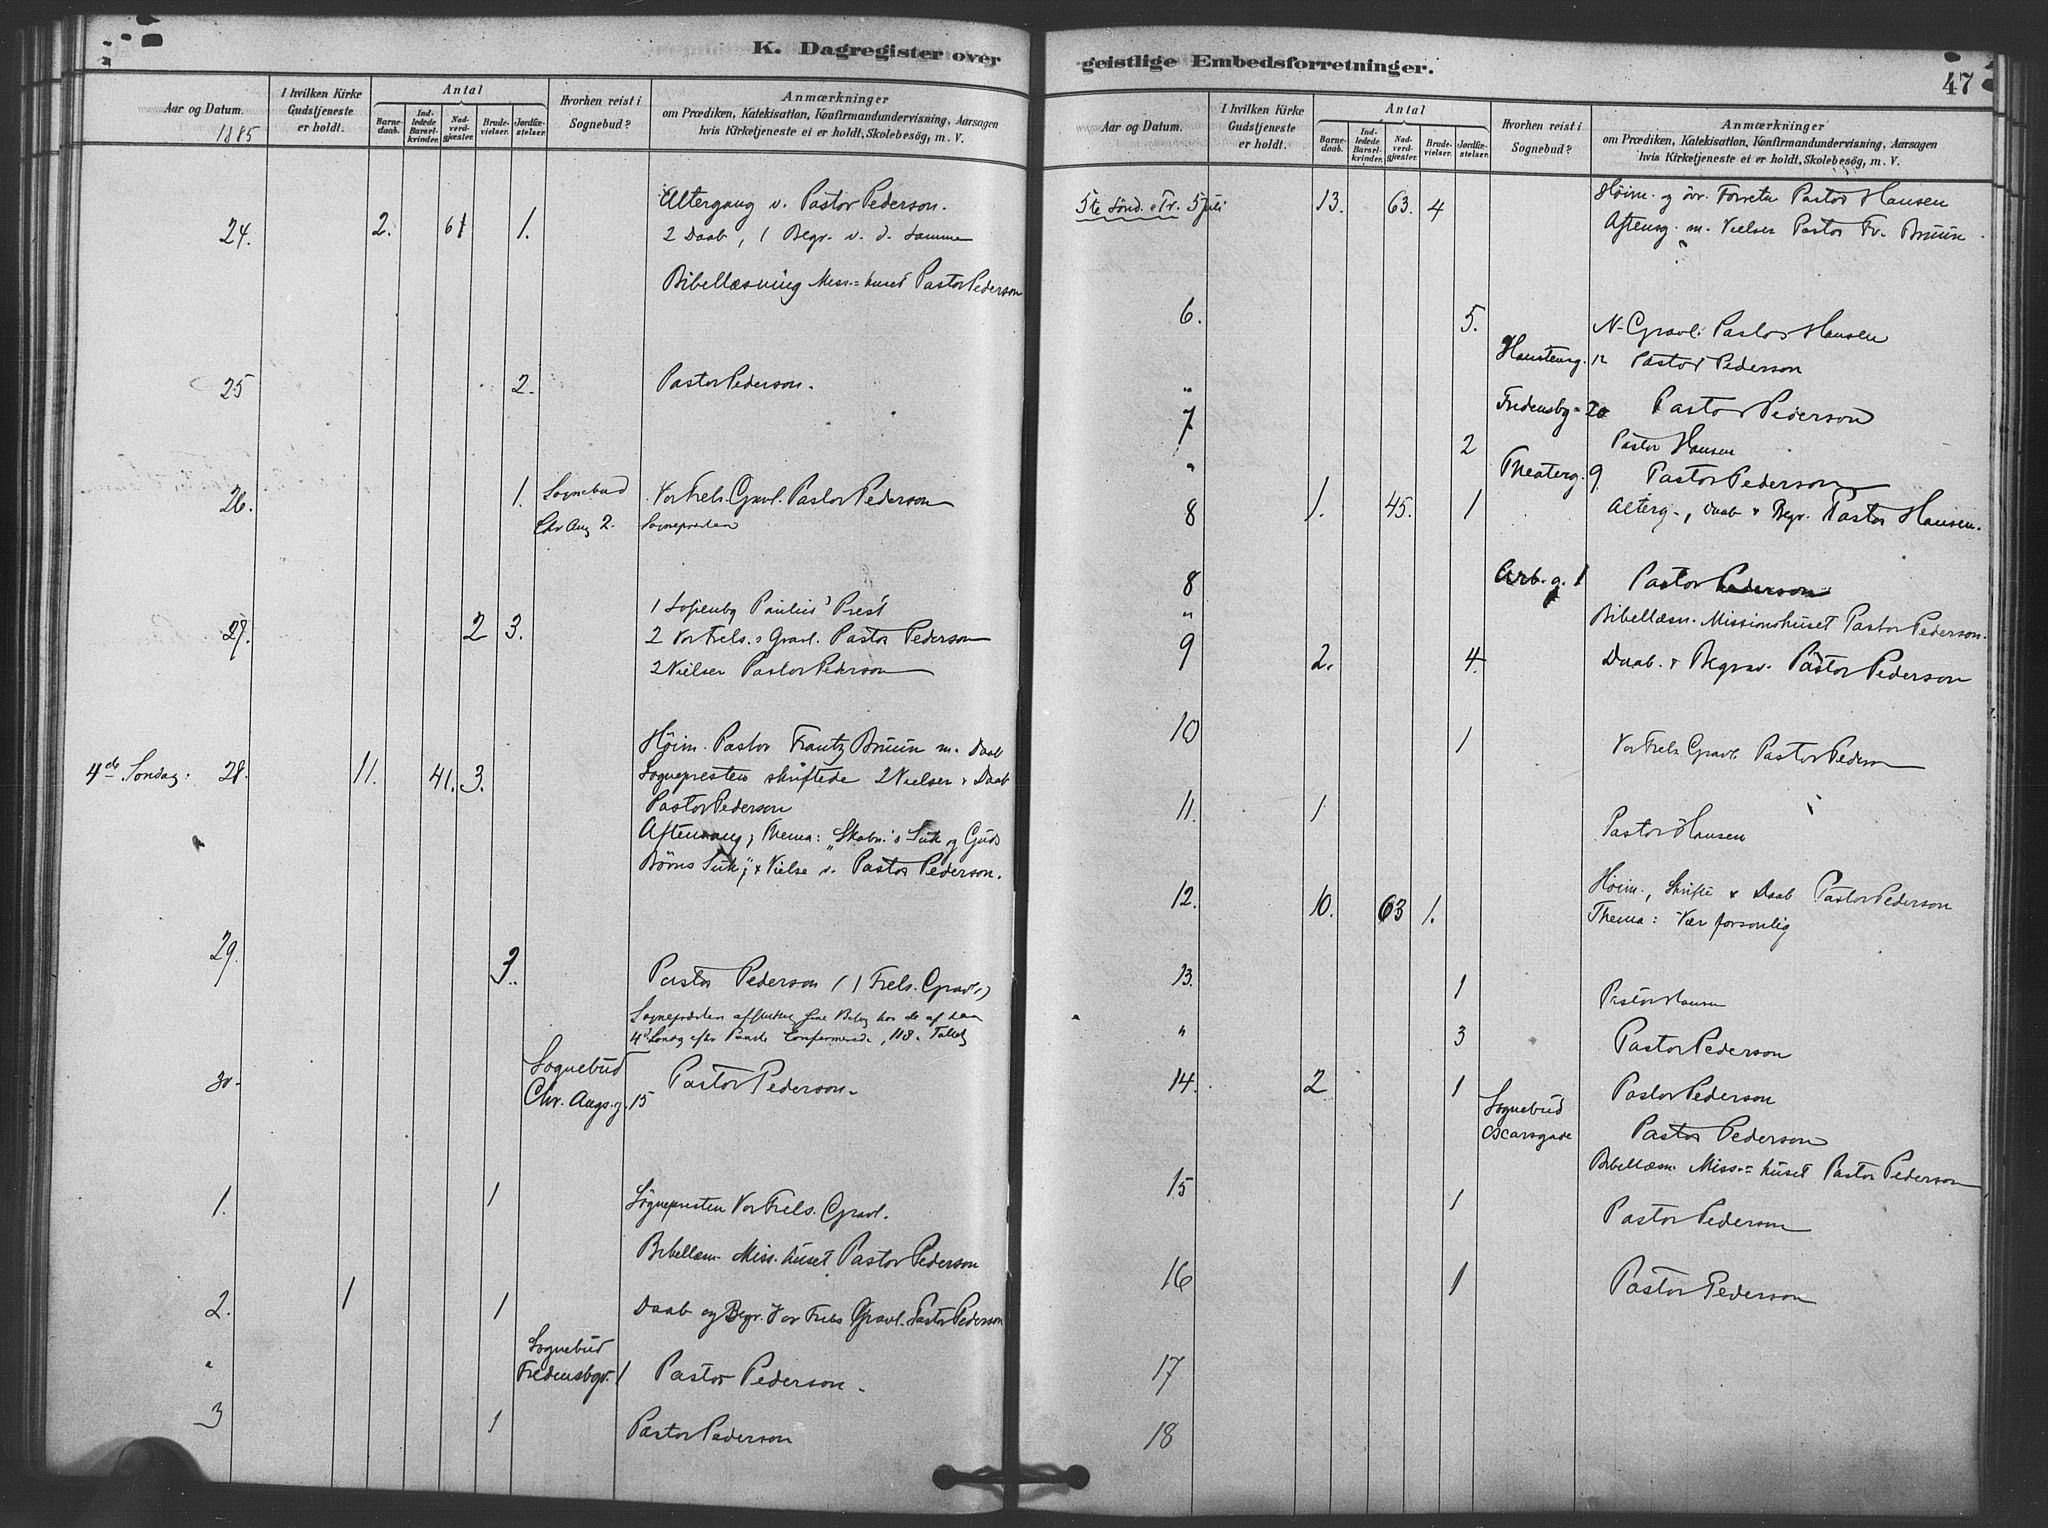 K. Dagregister over
Aar og Datum.
1885
I hvilken Kirke Gudstjeneste er holdt.
Antal
Barnedaab.
Indledede Barselkvinder.
Nadverdgjester.
Brudevielser.
Jordfæstelser.
Hvorhen reist i Sognebud?
Anmærkninger
om Prædiken, Katekisation, Konfirmandundervisning, Aarsagen
hvis Kirketjeneste ei er holdt, Skolebesög, m. V.
Altergang v. Pastor Pederson.
24. 2. 61 1. 2 Daab, 1 Begr. v. d. samme
Bibellæsning Miss.=huset Pastor Pederson
25 2. Pastor Pederson.
26. 1. Sognebud Vor Frels. Gravl. Pastor Pederson
Chr Aug 2. Sognepresten
1 Sofienbg Paulus' Prest
27. 2 3. 2 Vor Frels.s Gravl. Pastor Pederson
2 Vielser Pastor Pederson
Høim. Pastor Frantz Bruun m. Daab
4de Søndag. 28. 11. 41. 3. Sognepresten skriftede 2 Vielser & Daab
Pastor Pederson
Aftensang; Thema: "Skabn.s Suk og Guds
Børns Suk"; & Vielse v. Pastor Pederson.
29. 3. Pastor Pederson (1 Frels. Gravl.)
Sognepresten
4d Søndag efter Paaske Confirmerede, 118.
30. Sognebud Pastor Pederson.
Chr. Augs.g. 15
1. 1 Sognepresten Vor Frels. Gravl.
Bibellæsn. Miss. huset Pastor Pederson
2. 1 1 Daab og Begr. Vor Frels Gravl. Pastor Pederson
Sognebud
" Fredensbgv. 1 Pastor Pederson.
3 1 Pastor Pederson
geistlige Embedsforretninger.
47
Aar og Datum.
I hvilken Kirke Gudstjeneste er holdt.
Antal
Barnedaab.
Indledede Barselkvinder.
Nadverdgjester.
Brudevielser.
Jordfæstelser.
Hvorhen reist i Sognebud?
Anmærkninger
om Prædiken, Katekisation, Konfirmandundervisning, Aarsagen
hvis Kirketjeneste ei er holdt, Skolebesög, m. V.
5te Sønd. e Tr. 5 Juli 13. 63. 4 Høim. og övr. Forretn Pastor Hansen
Aftensg. m. Vielser Pastor Fr. Bruun.
6. 5. N. Gravl. Pastor Hansen
12 Pastor Pederson
" Fredensbg. 20 Pastor Pederson
7 2 Pastor Hansen
" Theaterg. 9 Pastor Pederson
8 1. 45. 1 Alterg., Daab & Begr. Pastor Hansen.
8 Arb. g. 1 Pastor Pederson
" Bibellæsn. Missionshuset Pastor Pederson.
9 2. 4. Daab. & Begrav. Pastor Pederson
10 1 Vor Frels Gravl. Pastor Pederson
11. 1 Pastor Hansen
12. 10. 63 1. Høim., Skrifte & Daab Pastor Pederson
Thema: Vær forsonlig
13. 1 Pastor Hansen
" 3 Pastor Pederson
14. 2 1 Pastor Pederson
Sognebud
Oscarsgade Pastor Pederson
Bibellæsn. Miss.=huset Pastor Pederson
15 1 Pastor Pederson
16 1 Pastor Pederson
17
18